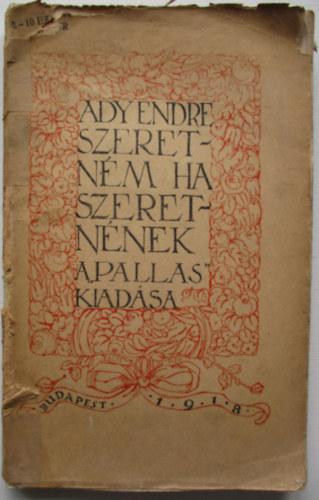 ADY ENDRE
SZERET-
NÉM HA
SZERET-
NÉNEK
A „PALLAS"
KIADÁSA
BUDAPEST · 1 · 9 · 1 · 8 ·